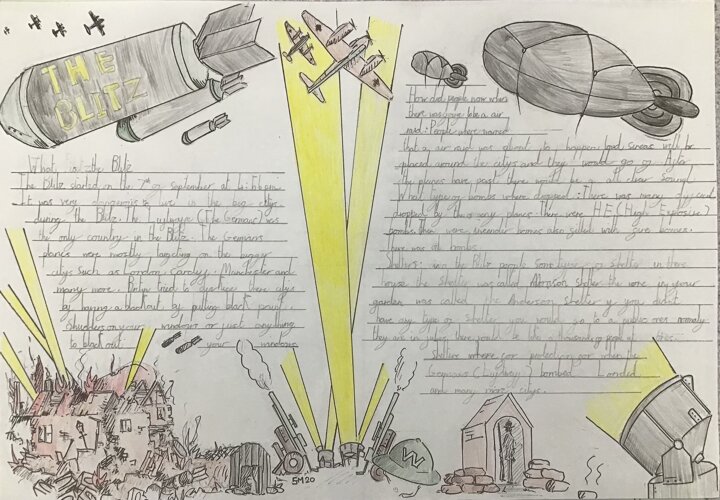 THE
BLITZ
What is the Blitz
The Blitz started on the 7th of september at 4:56pm.
It was very dangerous to live in the big citys
during the Blitz. The Luftwafe (The Germans) was
the only country in the Blitz. The Germans
planes were mostly landing on the bigger
citys such as London, Cardyf, Manchester and
many more. Britan tried to these citys
by having a blackout by putting black paint
Shudders on your windows or just anything
to black out your windows
How did people now when
there was going to be a air
raid: People where warned
that a air raid was about to happen loud sirens will be
placed around the citys and they would go of. After
the planes have past there would be a all clear sound
What types of bombs where dropped: There was many different
dropped by the enemy planes. There were H.E (High Exposive)
bombs. there were also filled with fire
There was oil bombs.
Shelters: in the Blitz people sometimes shelter in there
house the shelter was called Morrison shelter the one in your
garden was called the Anderson Shelter if you didnt
have any type of shelter you would go to a public ones normaly
they are in there could be up to a thousand people of
shelter where for protection for when the
Germans bombed London
and many more citys.
W
5M20